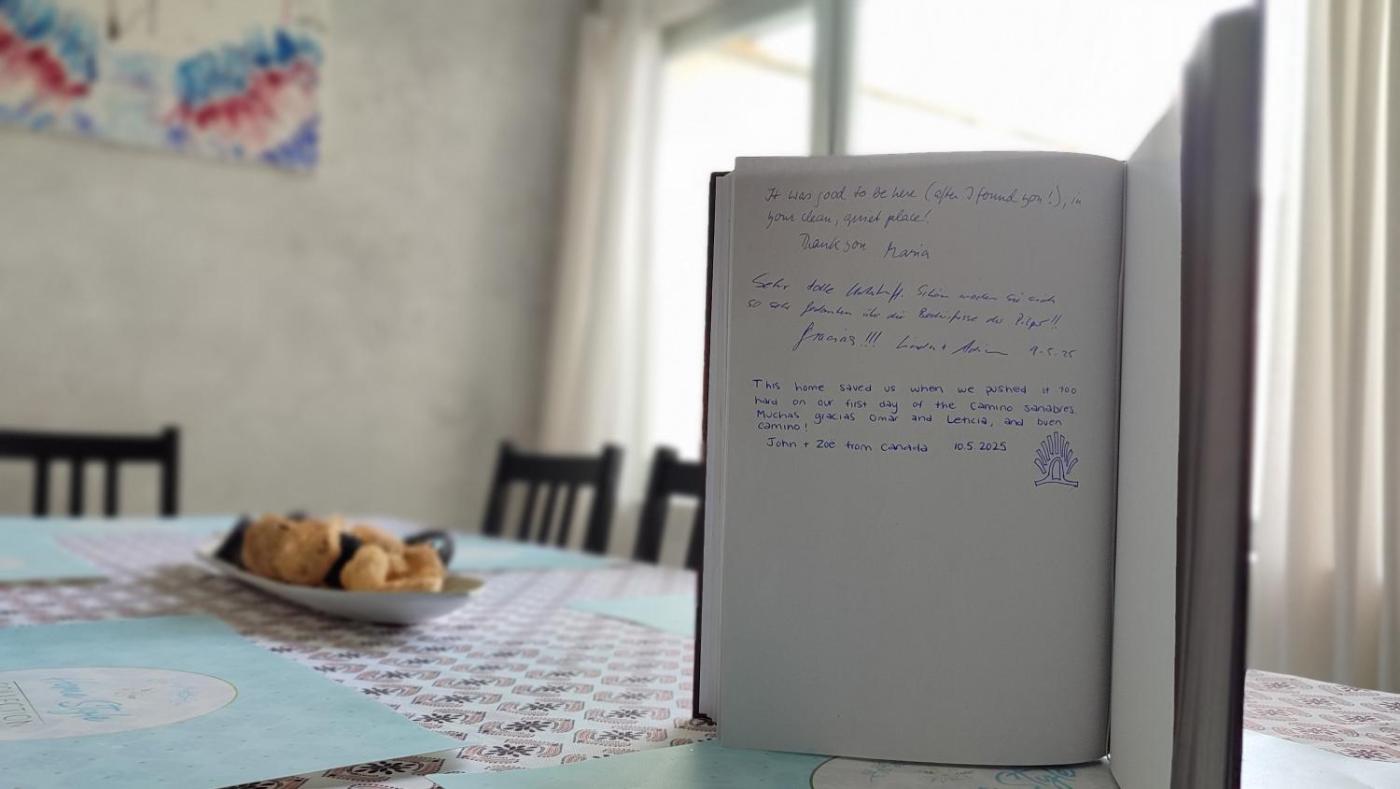 It was good to be here (after I found you!), in
your clean, quiet place!
Thank you Maria
Sehr tolle Unterkunft. Schön machen sie sich
so sehr Gedanken über die Bedürfnisse der Pilger!!
Gracias!!! Linda + 9.5.25
This home saved us when we pushed it too
hard on our first day of the Camino Sanabres.
Muchas gracias Omar and Leticia, and buen
camino!
John + Zoë from Canada 10.5.2025